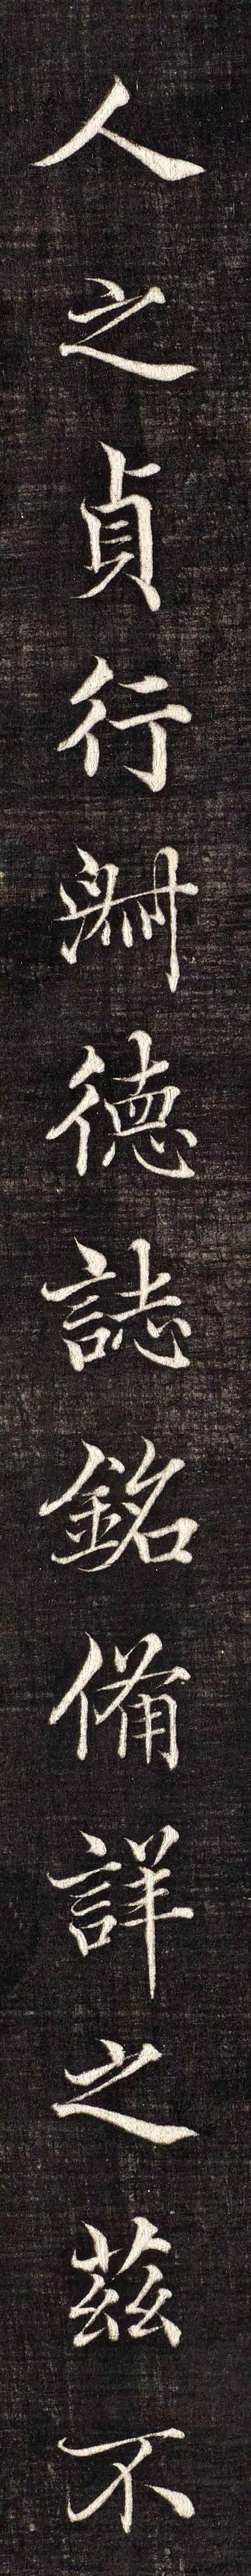 人之貞行淵德誌銘備詳之茲不